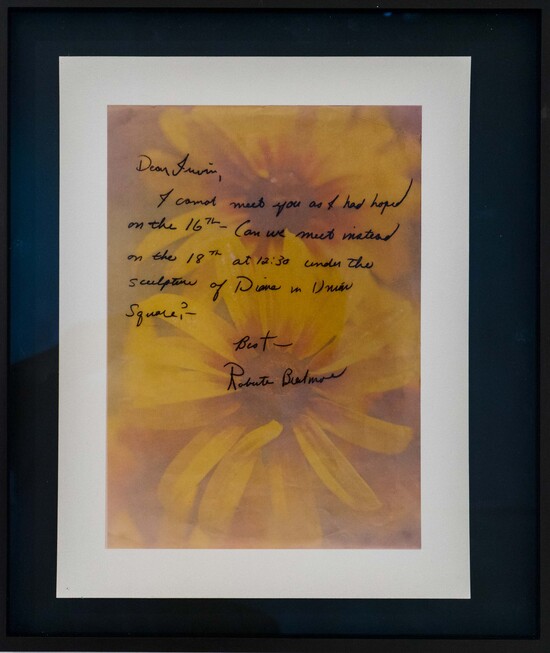 Dear Irwin,
I cannot meet you as I had hoped
on the 16TH - Can we meet instead
on the 18TH at 12:30 under the
sculpture of Diana in Union
Square? -
Best -
Roberta